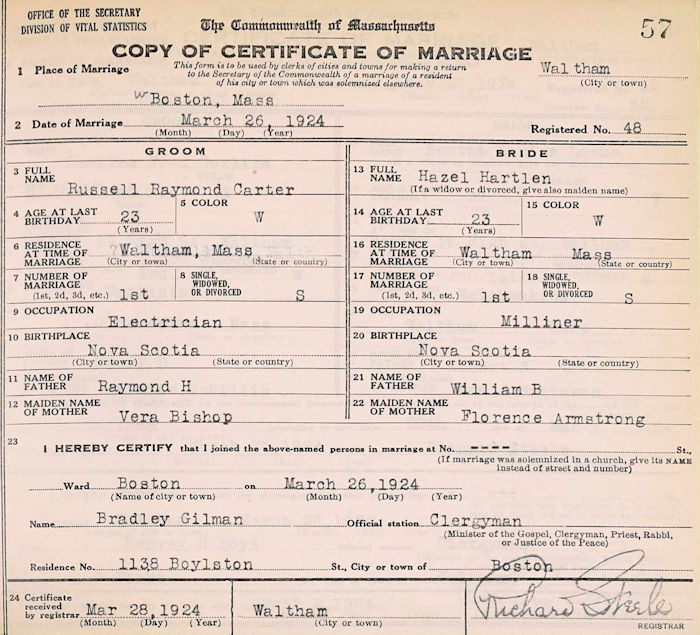 OFFICE OF THE SECRETARY
DIVISION OF VITAL STATISTICS
The Commonwealth of Massachusetts
57
COPY OF CERTIFICATE OF MARRIAGE
1 Place of Marriage
This form is to be used by clerks of cities and towns for making a return
to the Secretary of the Commonwealth of a marriage of a resident
of his city or town which was solemnized elsewhere.
Waltham
(City or town)
Boston, Mass
2 Date of Marriage March 26, 1924
(Month) (Day) (Year)
Registered No. 48
GROOM
3 FULL NAME
Russell Raymond Carter
4 AGE AT LAST BIRTHDAY 23
(Years)
5 COLOR
W
6 RESIDENCE AT TIME OF MARRIAGE Waltham, Mass
(City or town) (State or country)
7 NUMBER OF MARRIAGE
(1st, 2d, 3d, etc.) 1st
8 SINGLE, WIDOWED, OR DIVORCED S
9 OCCUPATION
Electrician
10 BIRTHPLACE
Nova Scotia
(City or town) (State or country)
11 NAME OF FATHER Raymond H
12 MAIDEN NAME OF MOTHER Vera Bishop
BRIDE
13 FULL NAME Hazel Hartlen
(If a widow or divorced, give also maiden name)
14 AGE AT LAST BIRTHDAY 23
(Years)
15 COLOR
W
16 RESIDENCE AT TIME OF MARRIAGE Waltham Mass
(City or town) (State or country)
17 NUMBER OF MARRIAGE
(1st, 2d, 3d, etc.) 1st
18 SINGLE, WIDOWED, OR DIVORCED S
19 OCCUPATION
Milliner
20 BIRTHPLACE
Nova Scotia
(City or town) (State or country)
21 NAME OF FATHER William B
22 MAIDEN NAME OF MOTHER Florence Armstrong
23
I HEREBY CERTIFY that I joined the above-named persons in marriage at No. ---- St.,
(If marriage was solemnized in a church, give its NAME
instead of street and number)
Ward Boston on March 26,1924
(Name of city or town) (Month) (Day) (Year)
Name Bradley Gilman Official station Clergyman
(Minister of the Gospel, Clergyman, Priest, Rabbi,
or Justice of the Peace)
Residence No. 1138 Boylston St., City or town of Boston
24 Certificate received by registrar Mar 28,1924 Waltham
(Month) (Day) (Year)
Richard Steele
REGISTRAR